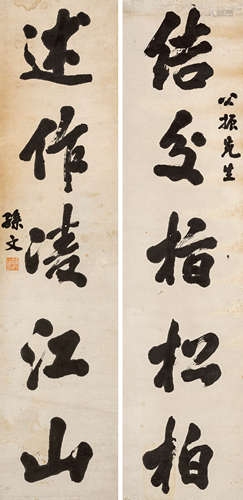 公振先生
結交指松柏
述作淩江山
孫文